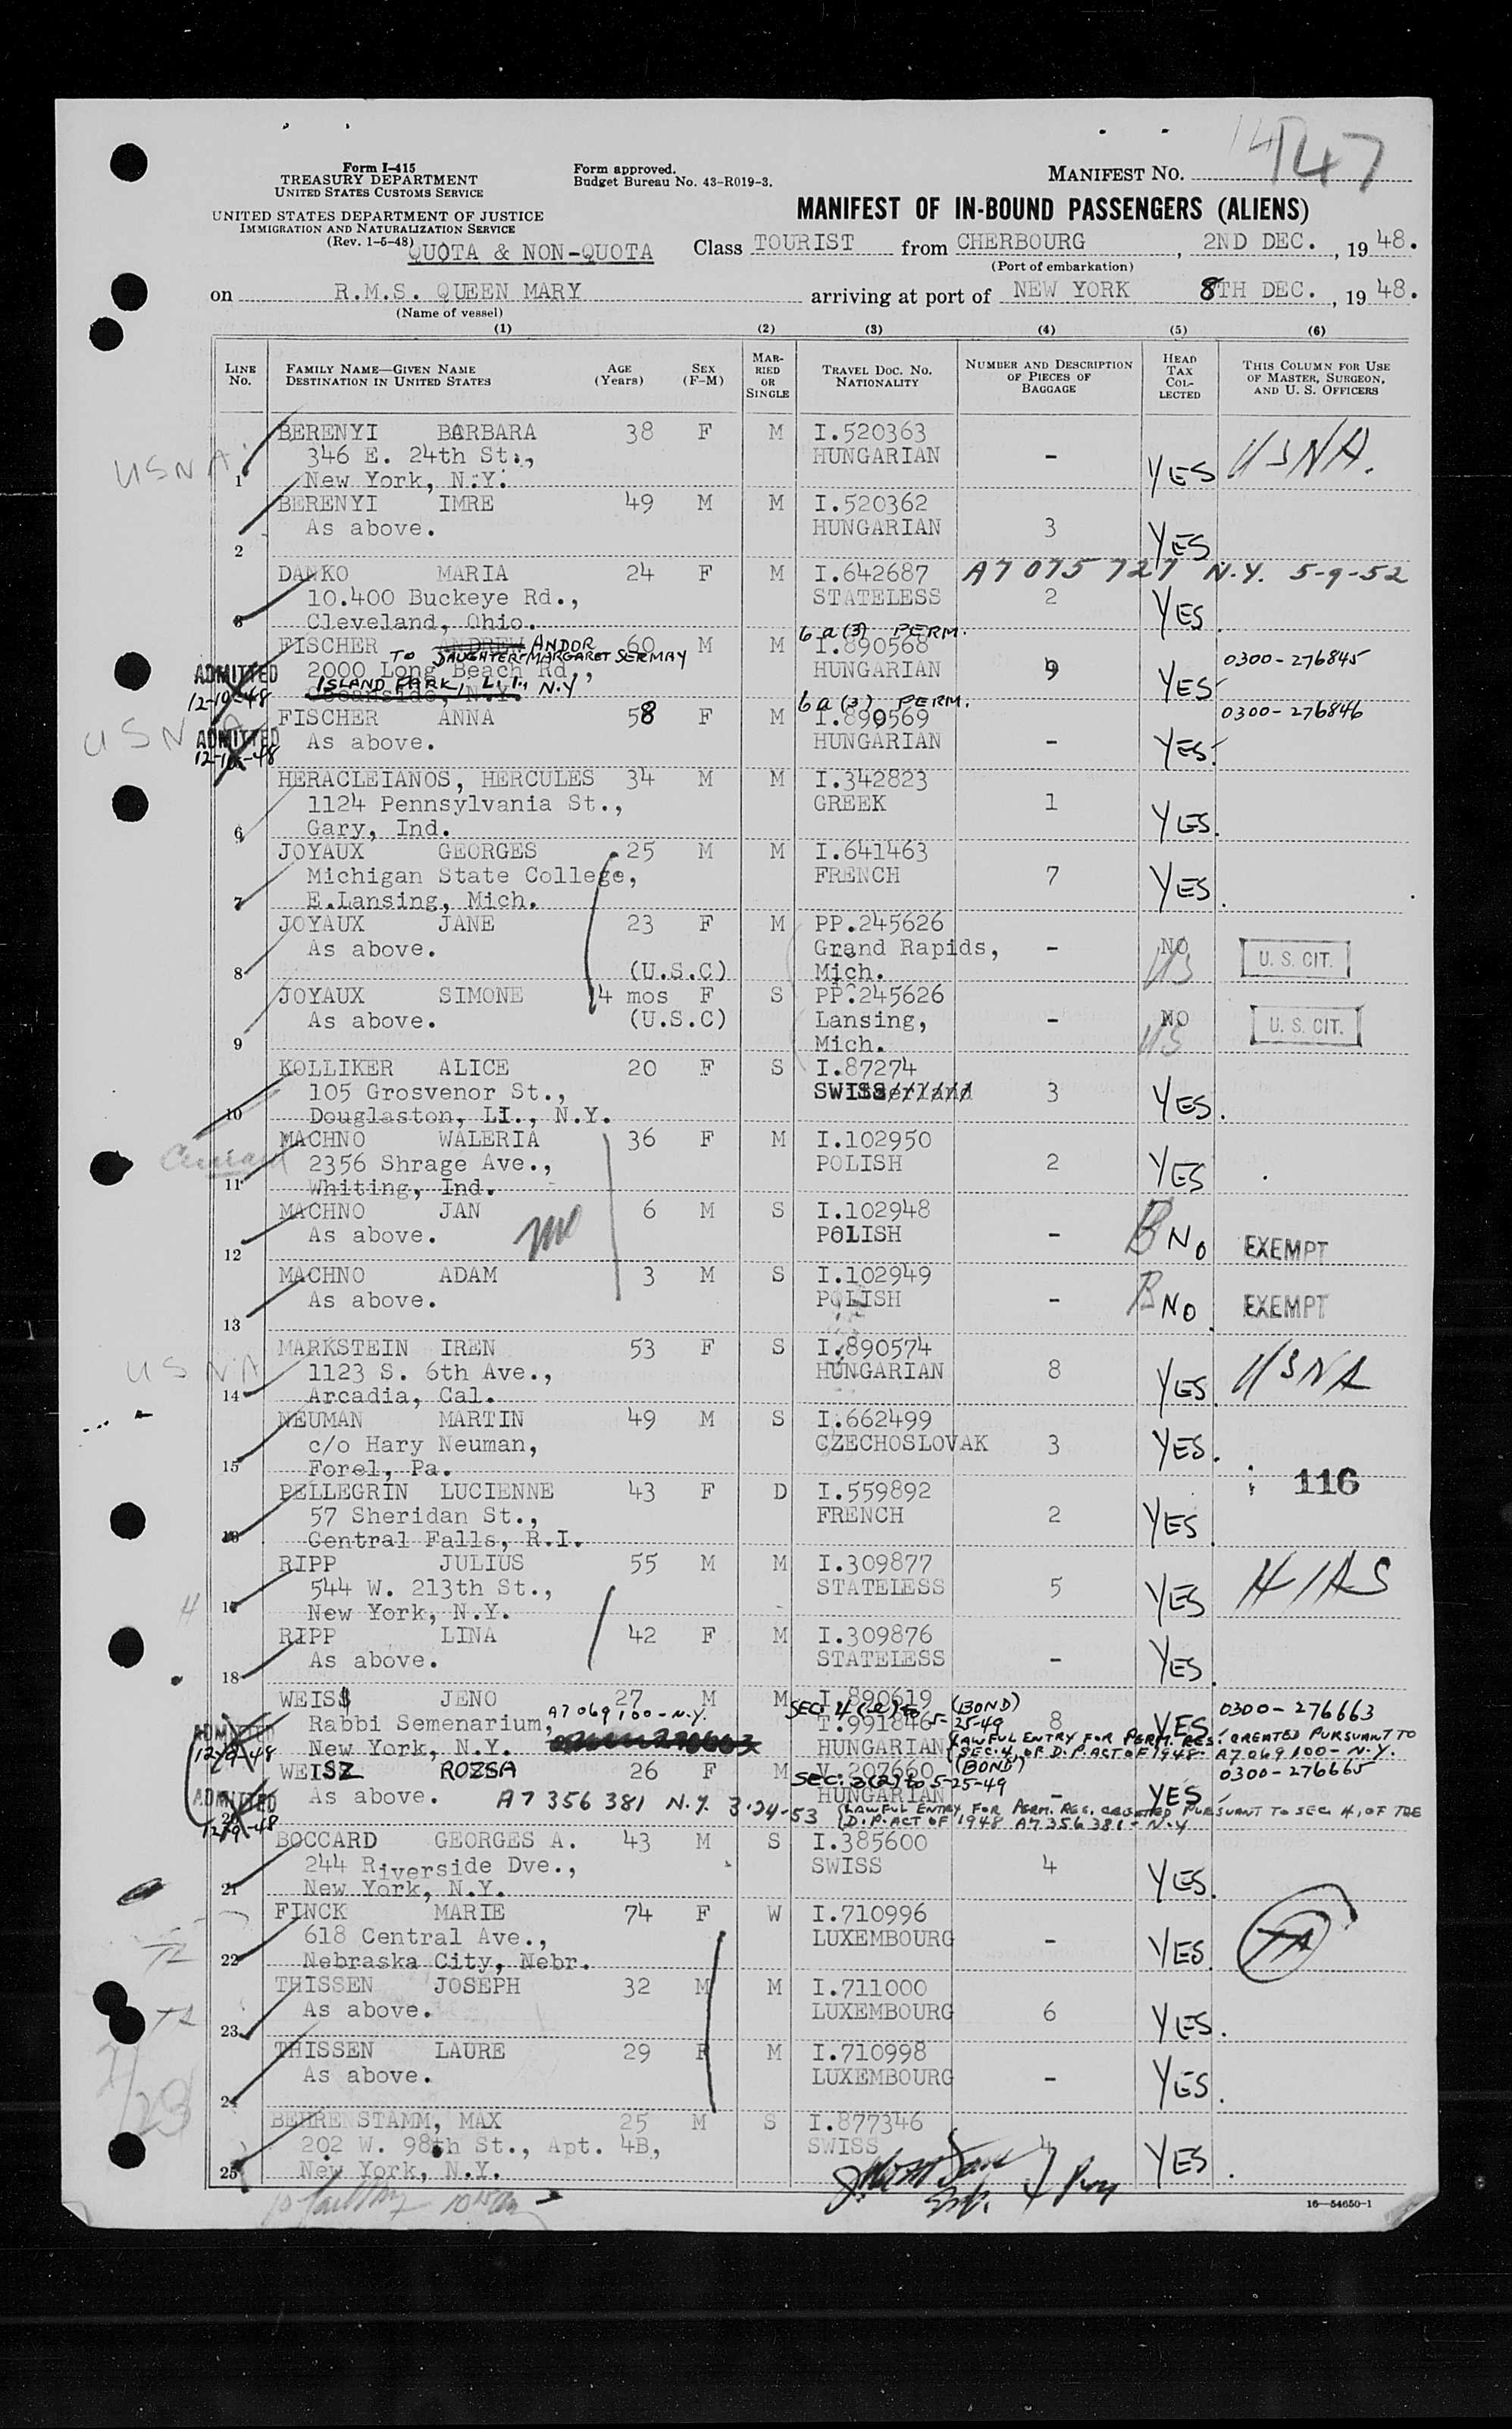 147
Form I-415
TREASURY DEPARTMENT
UNITED STATES CUSTOMS SERVICE
UNITED STATES DEPARTMENT OF JUSTICE
IMMIGRATION AND NATURALIZATION SERVICE
(Rev. 1-5-48)
Form approved.
Budget Bureau No. 43-R019-3.
MANIFEST NO.
MANIFEST OF IN-BOUND PASSENGERS (ALIENS)
QUOTA & NON-QUOTA Class TOURIST from CHERBOURG, 2ND DEC., 1948.
(Port of embarkation)
on R.M.S. QUEEN MARY arriving at port of NEW YORK 8TH DEC., 1948.
(Name of vessel)
(1) (2) (3) (4) (5) (6)
LINE NO. FAMILY NAME—GIVEN NAME DESTINATION IN UNITED STATES AGE (Years) SEX (F-M) MARRIED OR SINGLE TRAVEL DOC. NO. NATIONALITY NUMBER AND DESCRIPTION OF PIECES OF BAGGAGE HEAD TAX COLLECTED THIS COLUMN FOR USE OF MASTER, SURGEON, AND U. S. OFFICERS
BERENYI BARBARA 38 F M I.520363
346 E. 24th St., HUNGARIAN -
USNA 1 New York, N.Y. YES USNA.
BERENYI IMRE 49 M M I.520362
As above. HUNGARIAN 3
2 YES
DANKO MARIA 24 F M I.642687 A7 075 727 N.Y. 5-9-52
10.400 Buckeye Rd., STATELESS 2
3 Cleveland, Ohio. YES
6a(3) PERM.
FISCHER ANDREW ANDOR 60 M M I.890568
TO DAUGHTER-MARGARET SERMAY
ADMITTED 2000 Long Beach Rd., HUNGARIAN 9 0300-276845
12-10-48 ISLAND PARK, L.I., N.Y YES
Oceanside, N.Y.
6a(3) PERM.
FISCHER ANNA 58 F M I.890569 0300-276846
USNA ADMITTED As above. HUNGARIAN - YES
12-10-48
HERACLEIANOS, HERCULES 34 M M I.342823
1124 Pennsylvania St., GREEK 1
6 Gary, Ind. YES
JOYAUX GEORGES 25 M M I.641463
Michigan State College, FRENCH 7
7 E.Lansing, Mich. YES
JOYAUX JANE 23 F M PP.245626
As above. Grand Rapids, - NO U. S. CIT.
8 (U.S.C) Mich. US
JOYAUX SIMONE 14 mos F S PP.245626
As above. (U.S.C) Lansing, - NO U. S. CIT.
9 Mich. US
KOLLIKER ALICE 20 F S I.87274
105 Grosvenor St., SWISSerland 3
10 Douglaston, LI., N.Y. YES
MACHNO WALERIA 36 F M I.102950
2356 Shrage Ave., POLISH 2
11 Whiting, Ind. YES
MACHNO JAN 6 M S I.102948
As above. POLISH - B NO EXEMPT
12
MACHNO ADAM 3 M S I.102949
As above. POLISH - B NO EXEMPT
13
MARKSTEIN IREN 53 F S I.890574
USNA 1123 S. 6th Ave., HUNGARIAN 8
14 Arcadia, Cal. YES USNA
NEUMAN MARTIN 49 M S I.662499
c/o Hary Neuman, CZECHOSLOVAK 3 YES
15 Forel, Pa.
116
PELLEGRIN LUCIENNE 43 F D I.559892
57 Sheridan St., FRENCH 2
16 Central Falls, R.I. YES
RIPP JULIUS 55 M M I.309877
544 W. 213th St., STATELESS 5
H 17 New York, N.Y. YES HIAS
RIPP LINA 42 F M I.309876
As above. STATELESS -
18 YES
WEISS JENO 27 M M I.890619
A7 069 100-N.Y. (BOND) 0300-276663
Rabbi Semenarium, T.991846 5-25-49 8 YES
ADMITTED New York, N.Y. HUNGARIAN LAWFUL ENTRY FOR PERM. RES. CREATED PURSUANT TO
SEC. 4, OF D.P. ACT OF 1948. A7 069 100-N.Y.
WEISZ ROZSA 26 F M V.207660 (BOND) 0300-276665
SEC. 3(2) to 5-25-49
ADMITTED As above. HUNGARIAN - YES
A7 356 381 N.Y. 3-24-53 LAWFUL ENTRY FOR PERM. RES. CREATED PURSUANT TO SEC 4, OF THE
D.P. ACT OF 1948 A7 356 381-N.Y
BOCCARD GEORGES A. 43 M S I.385600
244 Riverside Dve., SWISS 4
21 New York, N.Y. YES
FINCK MARIE 74 F W I.710996
618 Central Ave., LUXEMBOURG -
22 Nebraska City, Nebr. YES
THISSEN JOSEPH 32 M M I.711000
As above. LUXEMBOURG 6
23 YES
THISSEN LAURE 29 F M I.710998
As above. LUXEMBOURG -
24 YES
BEHRENSTAMM, MAX 25 M S I.877346
202 W. 98th St., Apt. 4B, SWISS 4
25 New York, N.Y. YES
16-54650-1